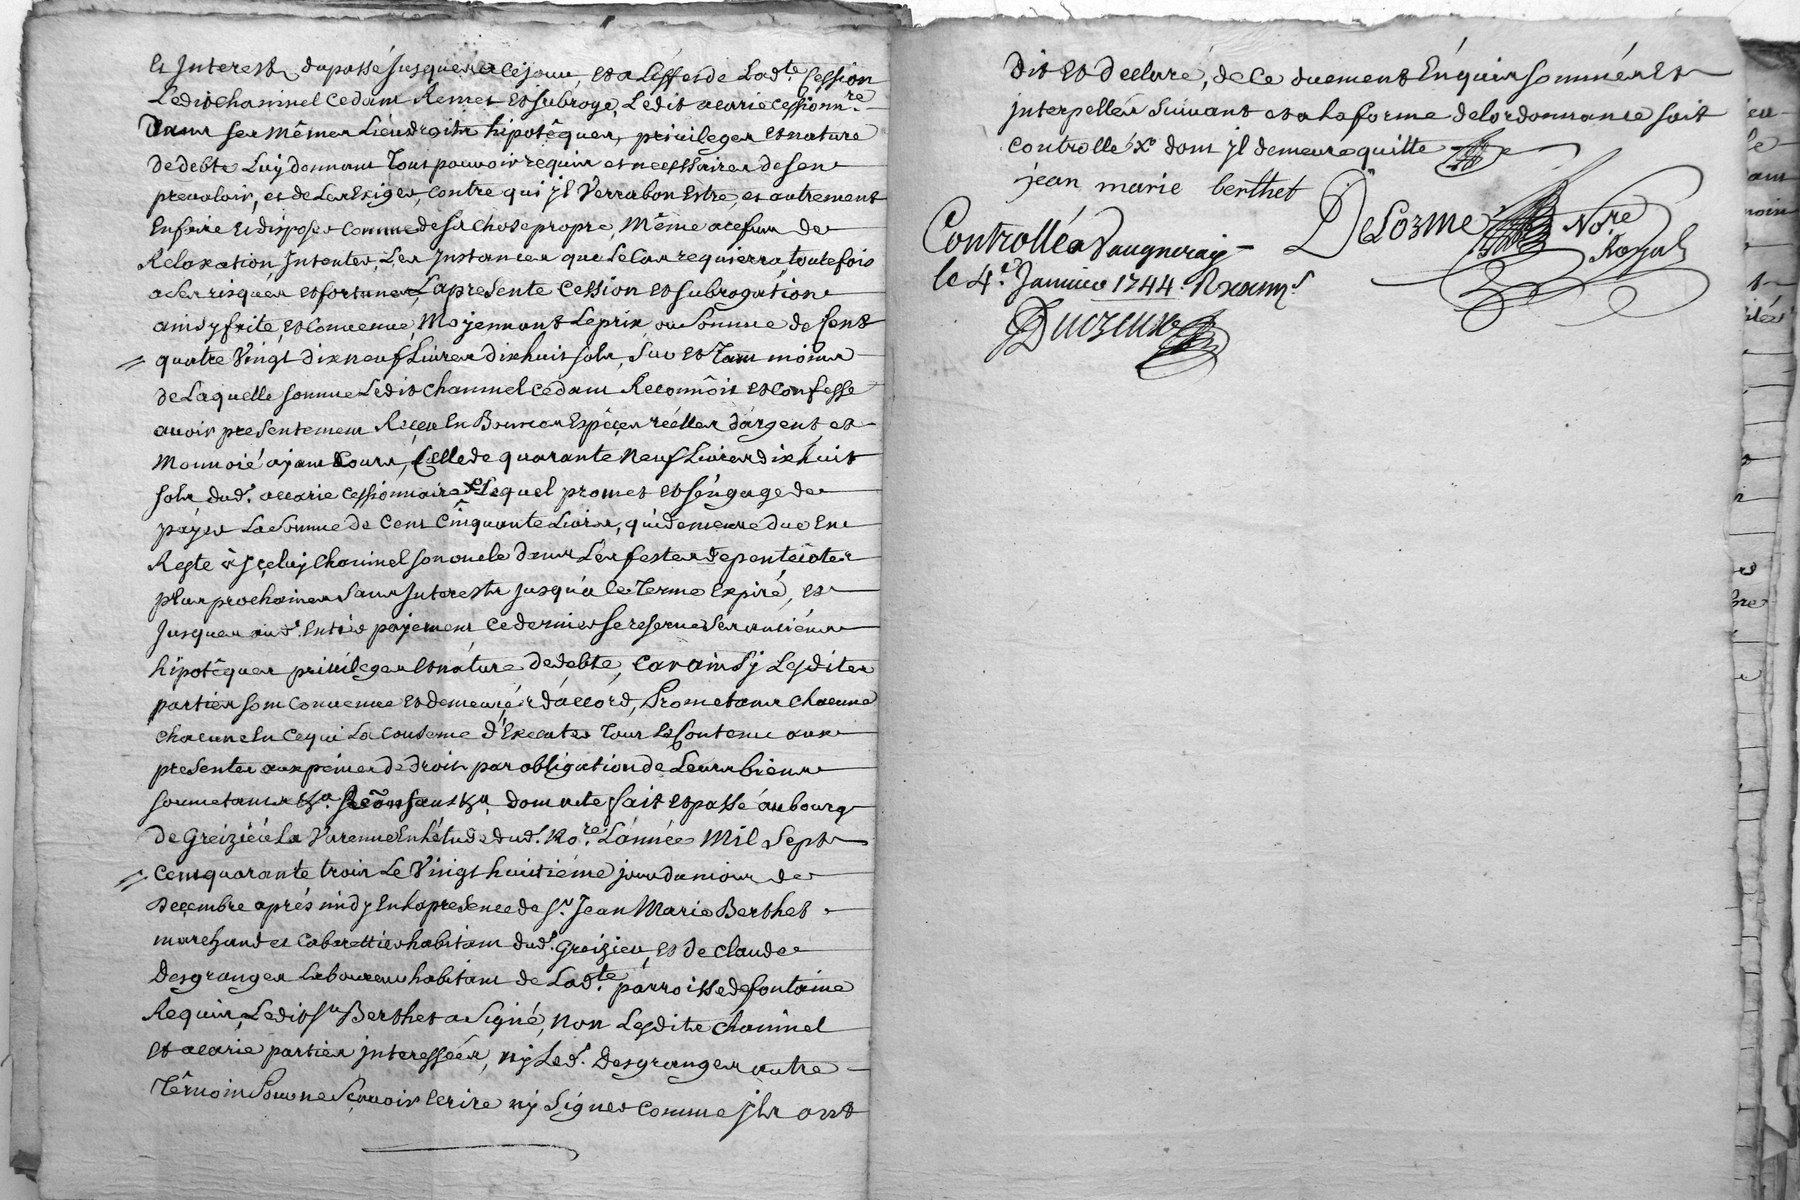 Et Interests du passé jusques à ce jour, et a l'effet de Ladte. Cession
Ledit chaninel cedant Remet et subroge, Ledit acarie cessionnre.
Dans ses mêmes Lieu droits hipotêques, privileges et nature
de debte Luy donnant Tout pouvoir requis et necessaires de s'en
prevaloir, et de Les Exiger, contre qui jl Verra bon Estre, et autrement
En faire et disposer comme de sa chose propre, Même a ces fins de
Relaxation, Intenter, Les Instances que Le Cas requierra, toutefois
a ses risques et fortunes, La presente Cession et subrogation
ainsy faite, et Convenue, Moyennant Le prix ou Somme de Cent
quatre Vingt dix neuf Livres dix huit sols,
de Laquelle somme Ledit Chaninel cedant Reconnoit et confesse
avoir presentement Reçeu En Bonnes Espéçes réelles d'argent et
Monnoié ayant Cours, Celle de quarante Neuf Livres dix huit
sols dud. acarie cessionnaire Lequel promet et s'engage de
payer La Somme de Cent Cinquante Livres, qui demeure due En
Reste à jceluy Chaninel son oncle dans Les festes de pentecôtes
plus prochaines sans Interests jusqu'a ce Terme Expiré, et
jusques au d. Entier payement ce dernier se reserve ses anciéns
hipotêques privileges et nature de debte, Car ainsy Lesdites
parties sont Convenues et demeurées d'accord, Promettans chacune
chacune En ce qui La Concerne d'Executer Tout Le Contenu aux
presentes aux peines de droit, par obligation de Leurs biens
soumettans &a. Renonçans &a. dont acte fait et passé au bourg
de Greiziéü La Varenne En L'étude dud. No.re L'année Mil Sept
Cent quarante trois Le Vingt huitiéme jour du mois de
Deçembre aprés midy En La presence de Sr. Jean Marie Berthet
marchand et Cabarettier habitant dud. Greizieu, et de Claude
Desgranges Laboureur habitant de Ladte. parroisse de fontaine
Requis, Ledit Sr Berthet a Signé, Non Lesdits Chaninel
et acarie parties jnteressées, ny Led. Desgranges autre
Têmoin Pour ne Sçavoir Ecrire ny Signer comme jls ont
dit et declaré, de ce duement Enquis sommées et
jnterpellés suivant et a la forme de l'ordonnance soit
controllé dont jl demeure quitte
jean marie berthet
DeLorme No.re
Royal
Controllé a Vaugneray
le 4e. Janvier 1744.